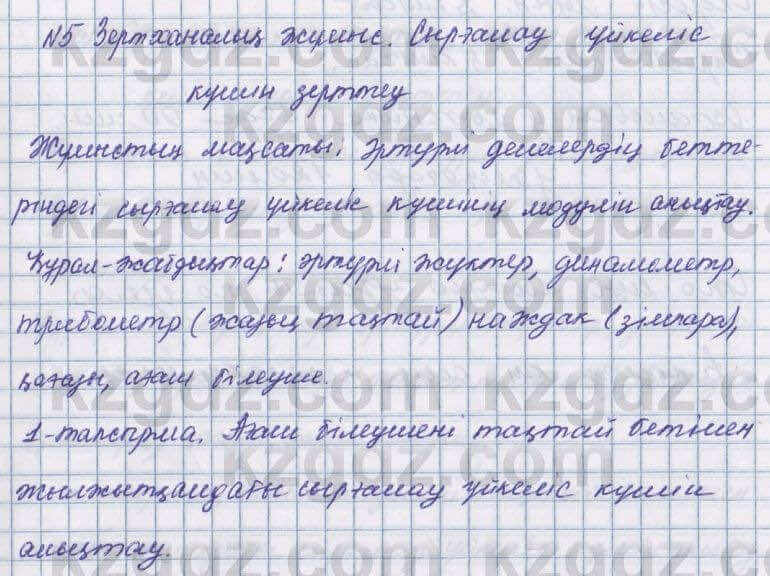 №5 Зертханалық жұмыс. Сырғанау үйкеліс
күшін зерттеу
Жұмыстың мақсаты: әртүрлі денелердің бетте-
ріндегі сырғанау үйкеліс күшінің модулін анықтау.
Құрал-жабдықтар: әртүрлі жүктер, динамометр,
трибометр (жазық тақтай) наждак (зімпара),
қағазы, ағаш білеуше.
1-тапсырма. Ағаш білеушені тақтай бетімен
жылжытқандағы сырғанау үйкеліс күшін
анықтау.
kzgdz.com